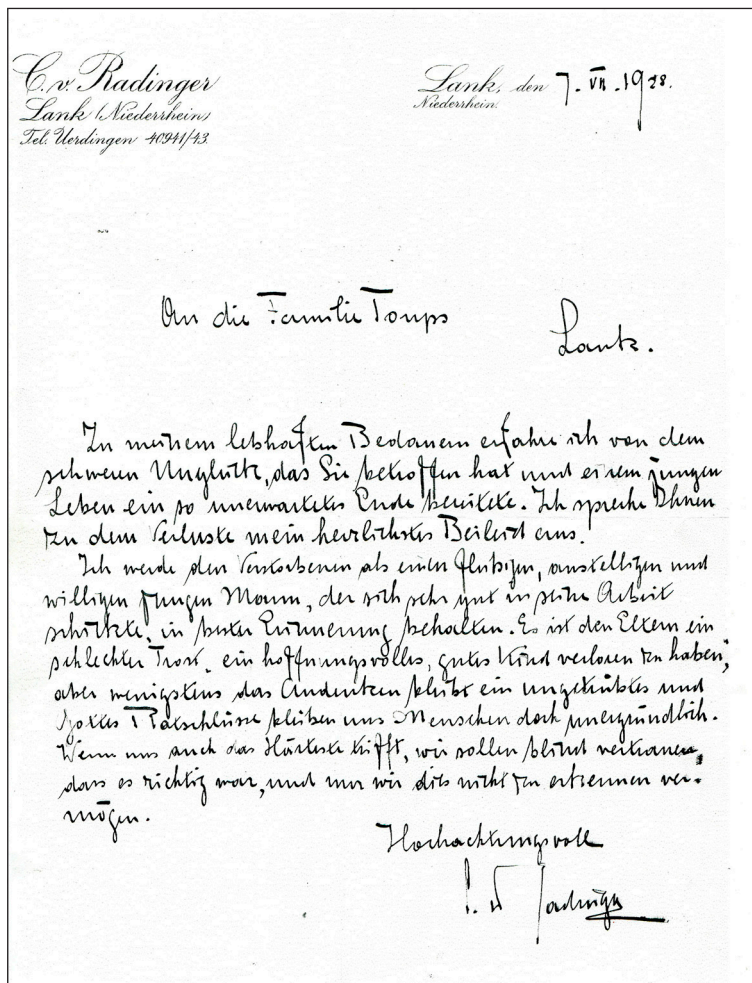 C. v. Radinger
Lank (Niederrhein)
Tel. Uerdingen 40941/43.
Lank, den 7. VII. 1928.
Niederrhein.
An die Familie Toups
Lank.
Zu meinem lebhaften Bedauern erfahre ich von dem
schweren Unglück, das Sie betroffen hat und einem jungen
Leben ein so unerwartetes Ende bereitete. Ich spreche Ihnen
zu dem Verluste mein herzlichstes Beileid aus.
Ich werde den Verstorbenen als einen fleißigen, anstelligen und
willigen jungen Mann, der sich sehr gut in seine Arbeit
schickte, in bester Erinnerung behalten. Es ist den Eltern ein
schlechter Trost, ein hoffnungsvolles, gutes Kind verloren zu haben,
aber wenigstens das Andenken bleibt ein ungetrübtes und
Gottes Ratschlüsse bleiben uns Menschen doch unergründlich.
Wenn uns auch das Härteste trifft, wir sollen blind vertrauen,
dass es richtig war, und nur wir dies nicht zu erkennen ver-
mögen.
Hochachtungsvoll
C. v. Radinger